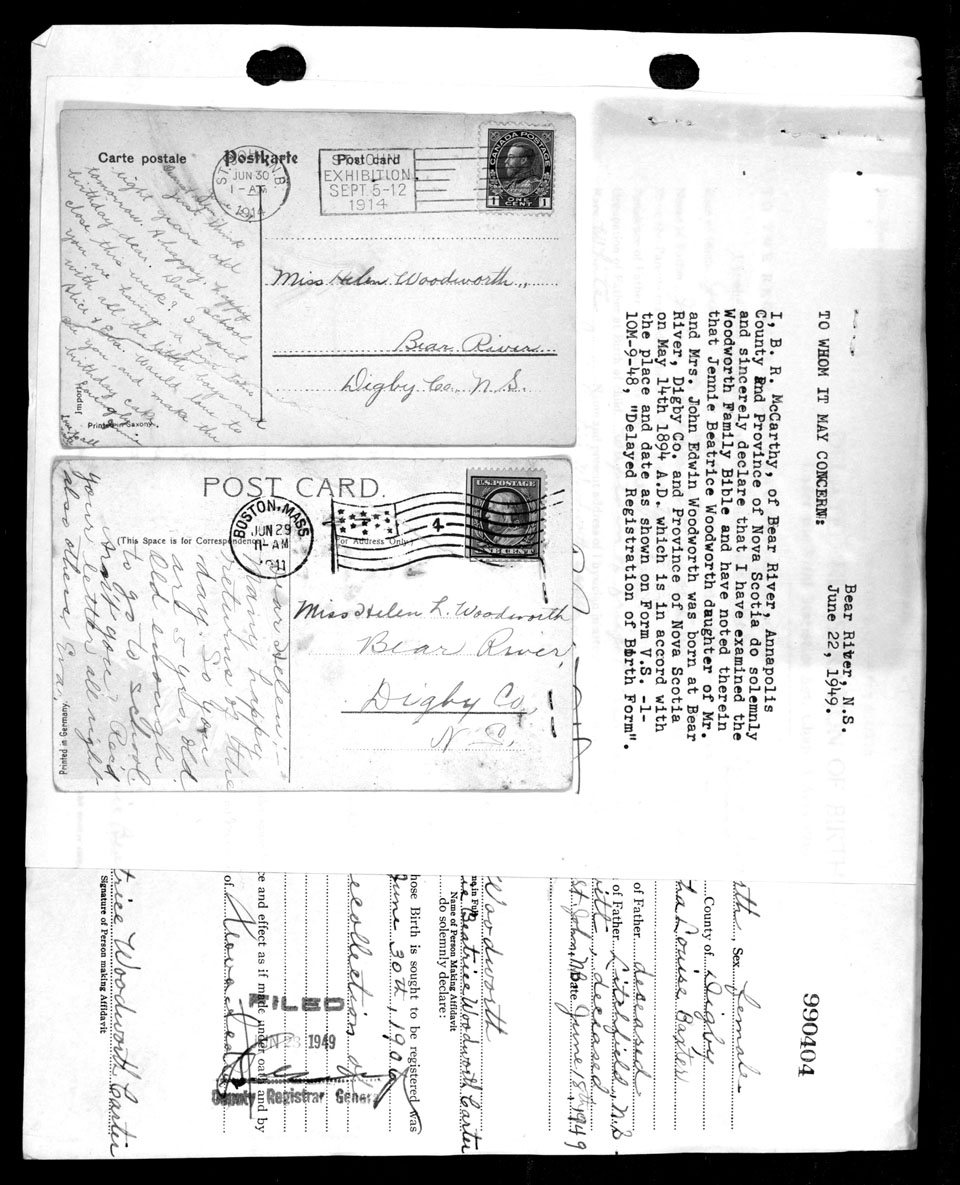 Carte postale Postkarte Post card
ST. JOHN, N.B.
JUN 30
1-AM
1914
ST. JOHN
EXHIBITION
SEPT 5-12
1914
CANADA POSTAGE
1 ONE CENT 1
think
eight years old
tomorrow. A happy, happy
birthday dear. Does school
close this week? I expect
you are having
with all the
Alice & Eda. Would
you and
birthday
Miss Helen Woodworth,
Bear River
Digby Co., N.S.
Printed in Saxony.
Imported
POST CARD.
BOSTON, MASS
JUN 29
11-AM
1911
4
U.S. POSTAGE
ONE CENT
(This Space is for Correspondence)
(For Address Only)
Dear Helen:-
Many happy
returns of the
day. So you
are 5 yrs. old
Old enough
to go to school
aren't you? Rec'd
your letter all right
also others, Eva.
Miss Helen L. Woodworth
Bear River,
Digby Co.,
N.S.
Printed in Germany.
Bear River, N.S.
June 22, 1949.
TO WHOM IT MAY CONCERN:
I, B. R. McCarthy, of Bear River, Annapolis
County And Province of Nova Scotia do solemnly
and sincerely declare that I have examined the
Woodworth Family Bible and have noted therein
that Jennie Beatrice Woodworth daughter of Mr.
and Mrs. John Edwin Woodworth was born at Bear
River, Digby Co. and Province of Nova Scotia
on May 14th 1894 A.D. which is in accord with
the place and date as shown on Form V.S. -1-
10M-9-48, "Delayed Registration of Birth Form".
990404
rth, Sex Female
County of Digby
ha Louise Baxter
of Father deseased
of Father Litchfield, N.S.
with deceased
St John, N.B Date June 18th, 1949
Woodworth
me in Full)
ie Beatrice Woodworth Carter
Name of Person Making Affidavit
do solemnly declare:
hose Birth is sought to be registered was
June 30th, 1906
ecollection of
ce and effect as if made under oath and by
of Nova Scotia
FILED
JUN 23 1949
Deputy Registrar General
trice Woodworth Carter
Signature of Person making Affidavit